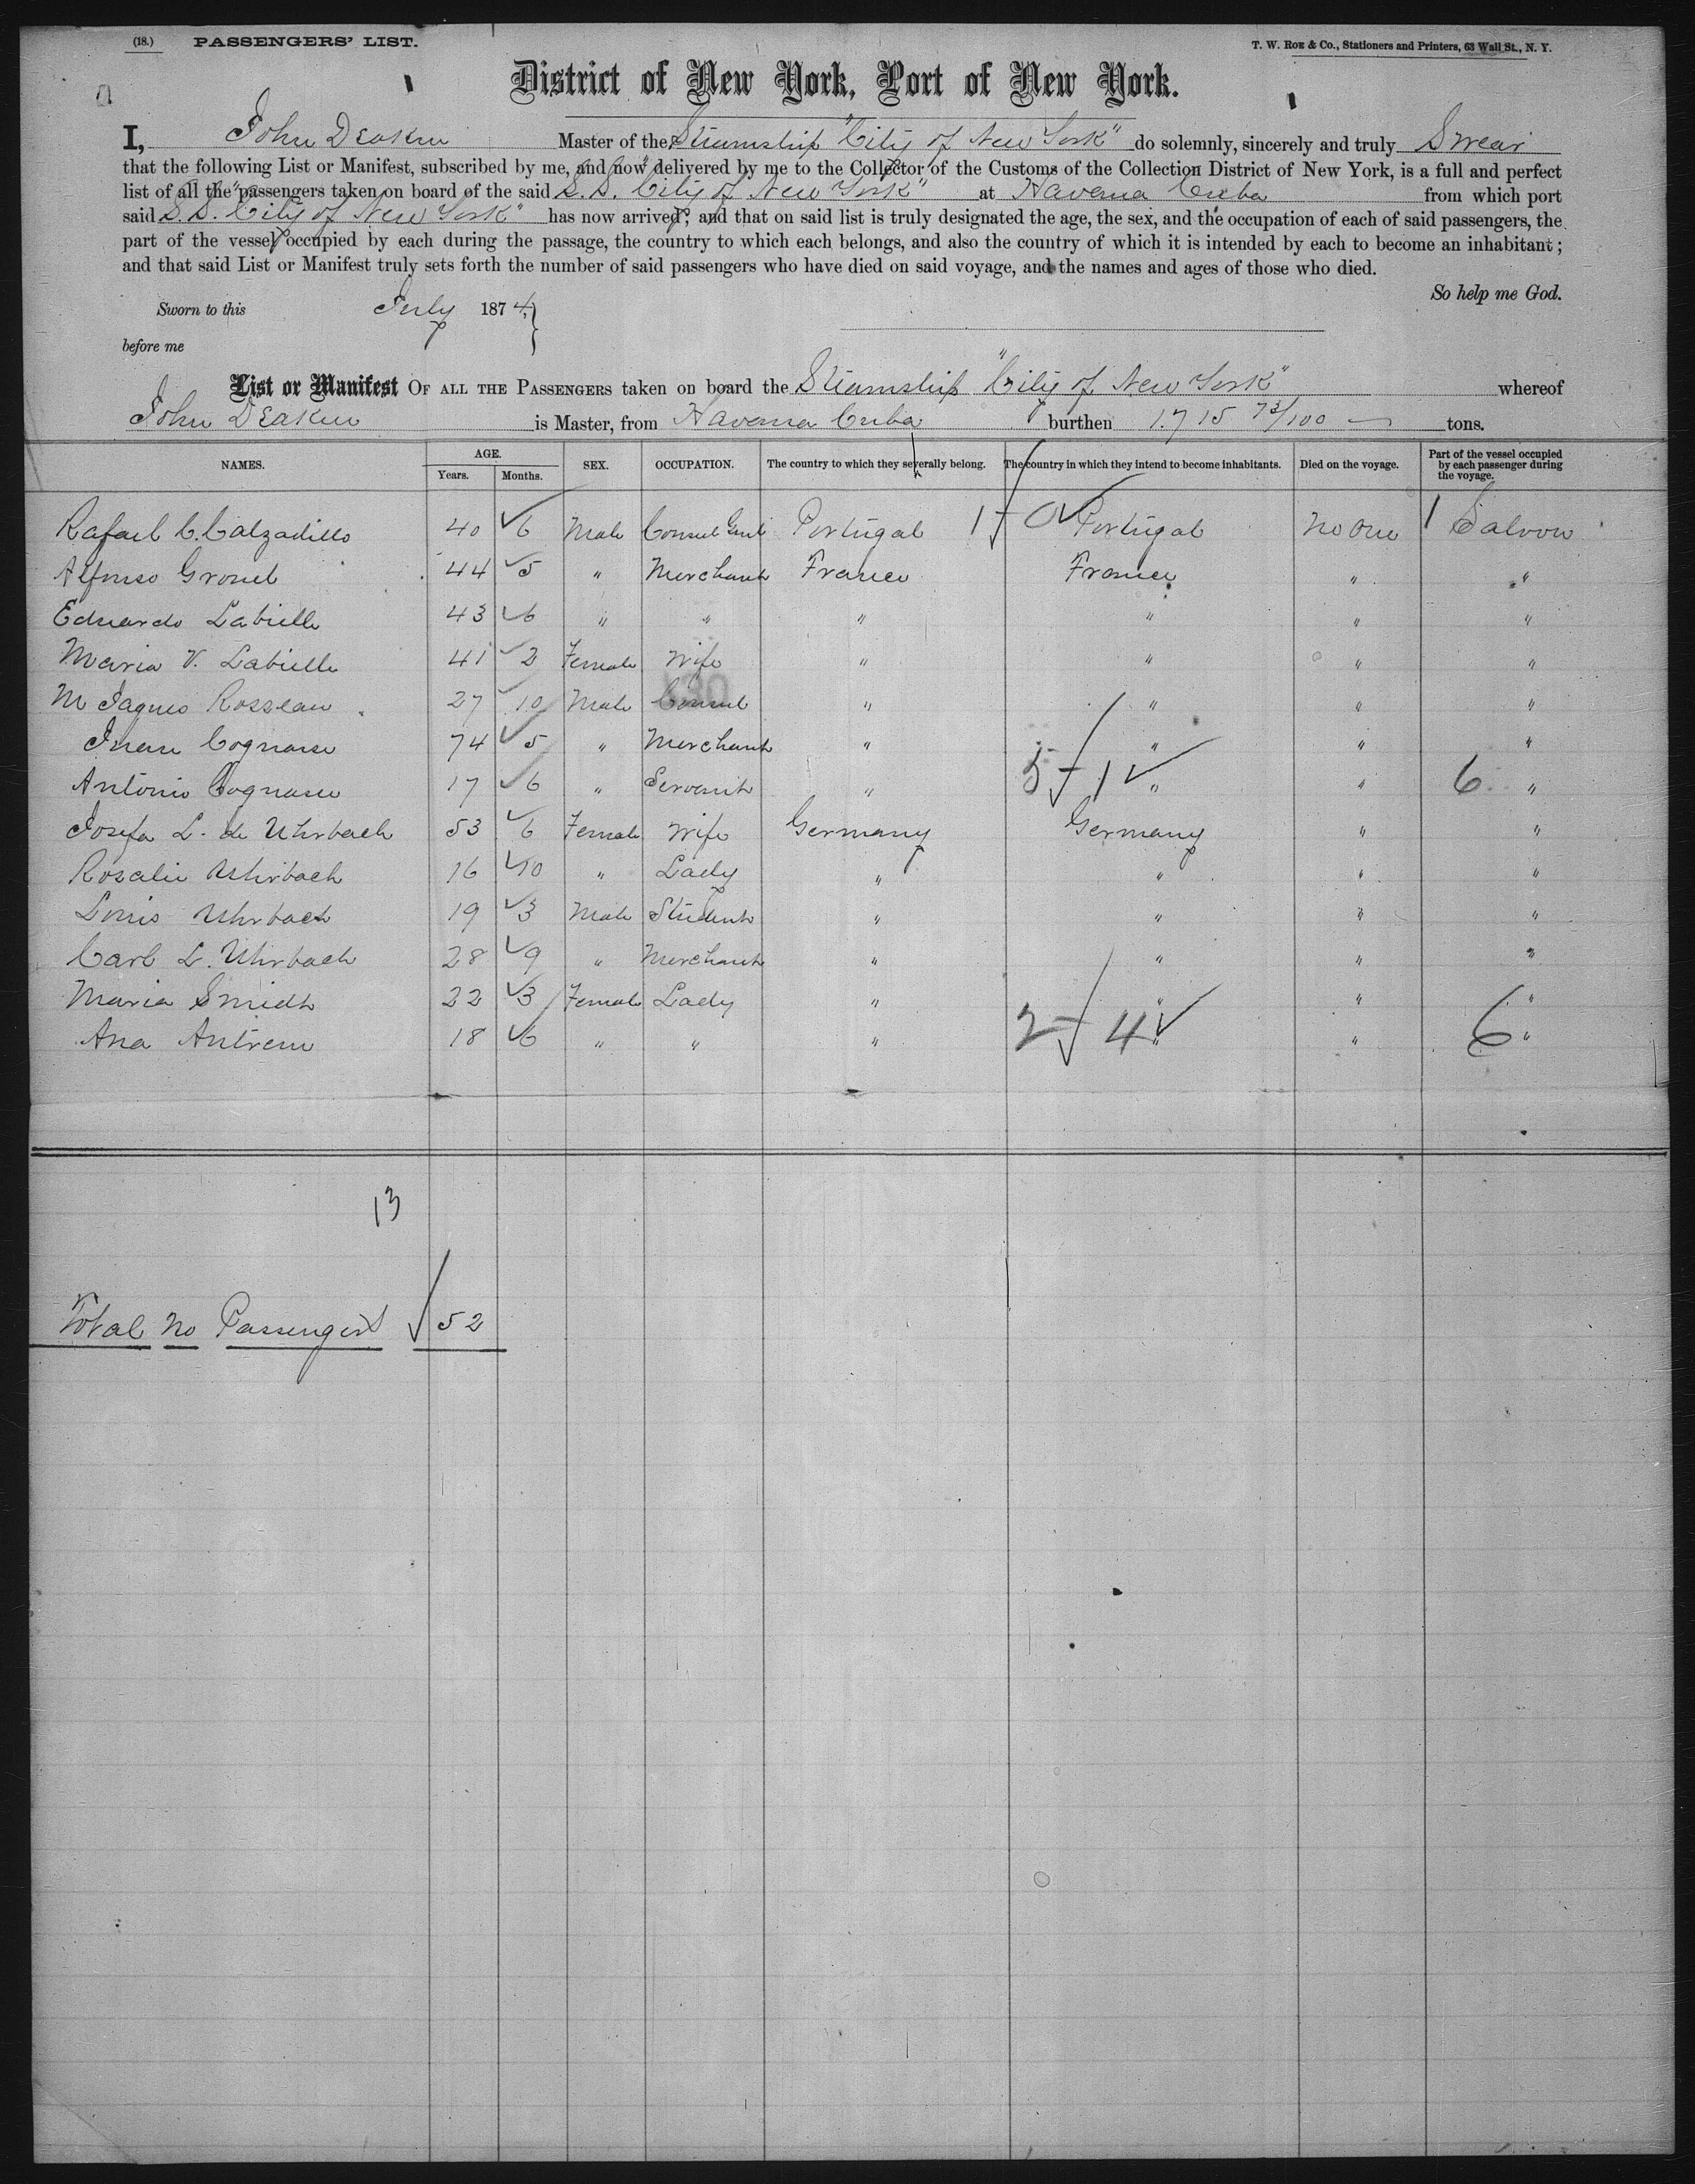 (18.) PASSENGERS' LIST. T. W. ROE & Co., Stationers and Printers, 63 Wall St., N. Y.
District of New York, Port of New York.
I, John Deakin Master of the Steamship "City of New York" do solemnly, sincerely and truly Swear
that the following List or Manifest, subscribed by me, and now delivered by me to the Collector of the Customs of the Collection District of New York, is a full and perfect
list of all the passengers taken on board of the said S.S. "City of New York" at Havana Cuba from which port
said S.S. "City of New York" has now arrived; and that on said list is truly designated the age, the sex, and the occupation of each of said passengers, the
part of the vessel occupied by each during the passage, the country to which each belongs, and also the country of which it is intended by each to become an inhabitant;
and that said List or Manifest truly sets forth the number of said passengers who have died on said voyage, and the names and ages of those who died.
So help me God.
Sworn to this July 1874,
before me
List or Manifest OF ALL THE PASSENGERS taken on board the Steamship "City of New York" whereof
John Deakin is Master, from Havana Cuba burthen 1.715 73/100 tons.
NAMES. AGE. Years. Months. SEX. OCCUPATION. The country to which they severally belong. The country in which they intend to become inhabitants. Died on the voyage. Part of the vessel occupied by each passenger during the voyage.
Rafael C. Calzadillo 40 6 Male Consul Genl Portugal 1 0 Portugal No One 1 Saloon
Alfonso 44 5 " Merchant France France " "
Eduardo Labielle 43 6 " " " " " "
Maria V. Labielle 41 2 Female Wife " " " "
M Jaques Rosseau 27 10 Male Consul " " " "
Juan 74 5 " Merchant " " " "
Antonio 17 6 " Servant " 5 1 " " 6 "
Josefa L. de Uhrbach 53 6 Female Wife Germany Germany " "
Rosalie Uhrbach 16 10 " Lady " " " "
Louis Uhrbach 19 3 Male Student " " " "
Carl L. Uhrbach 28 9 " Merchant " " " "
Maria Smidt 22 3 Female Lady " " " "
Ana 18 6 " " " 2 4 " " 6 "
13
Total No Passengers 52